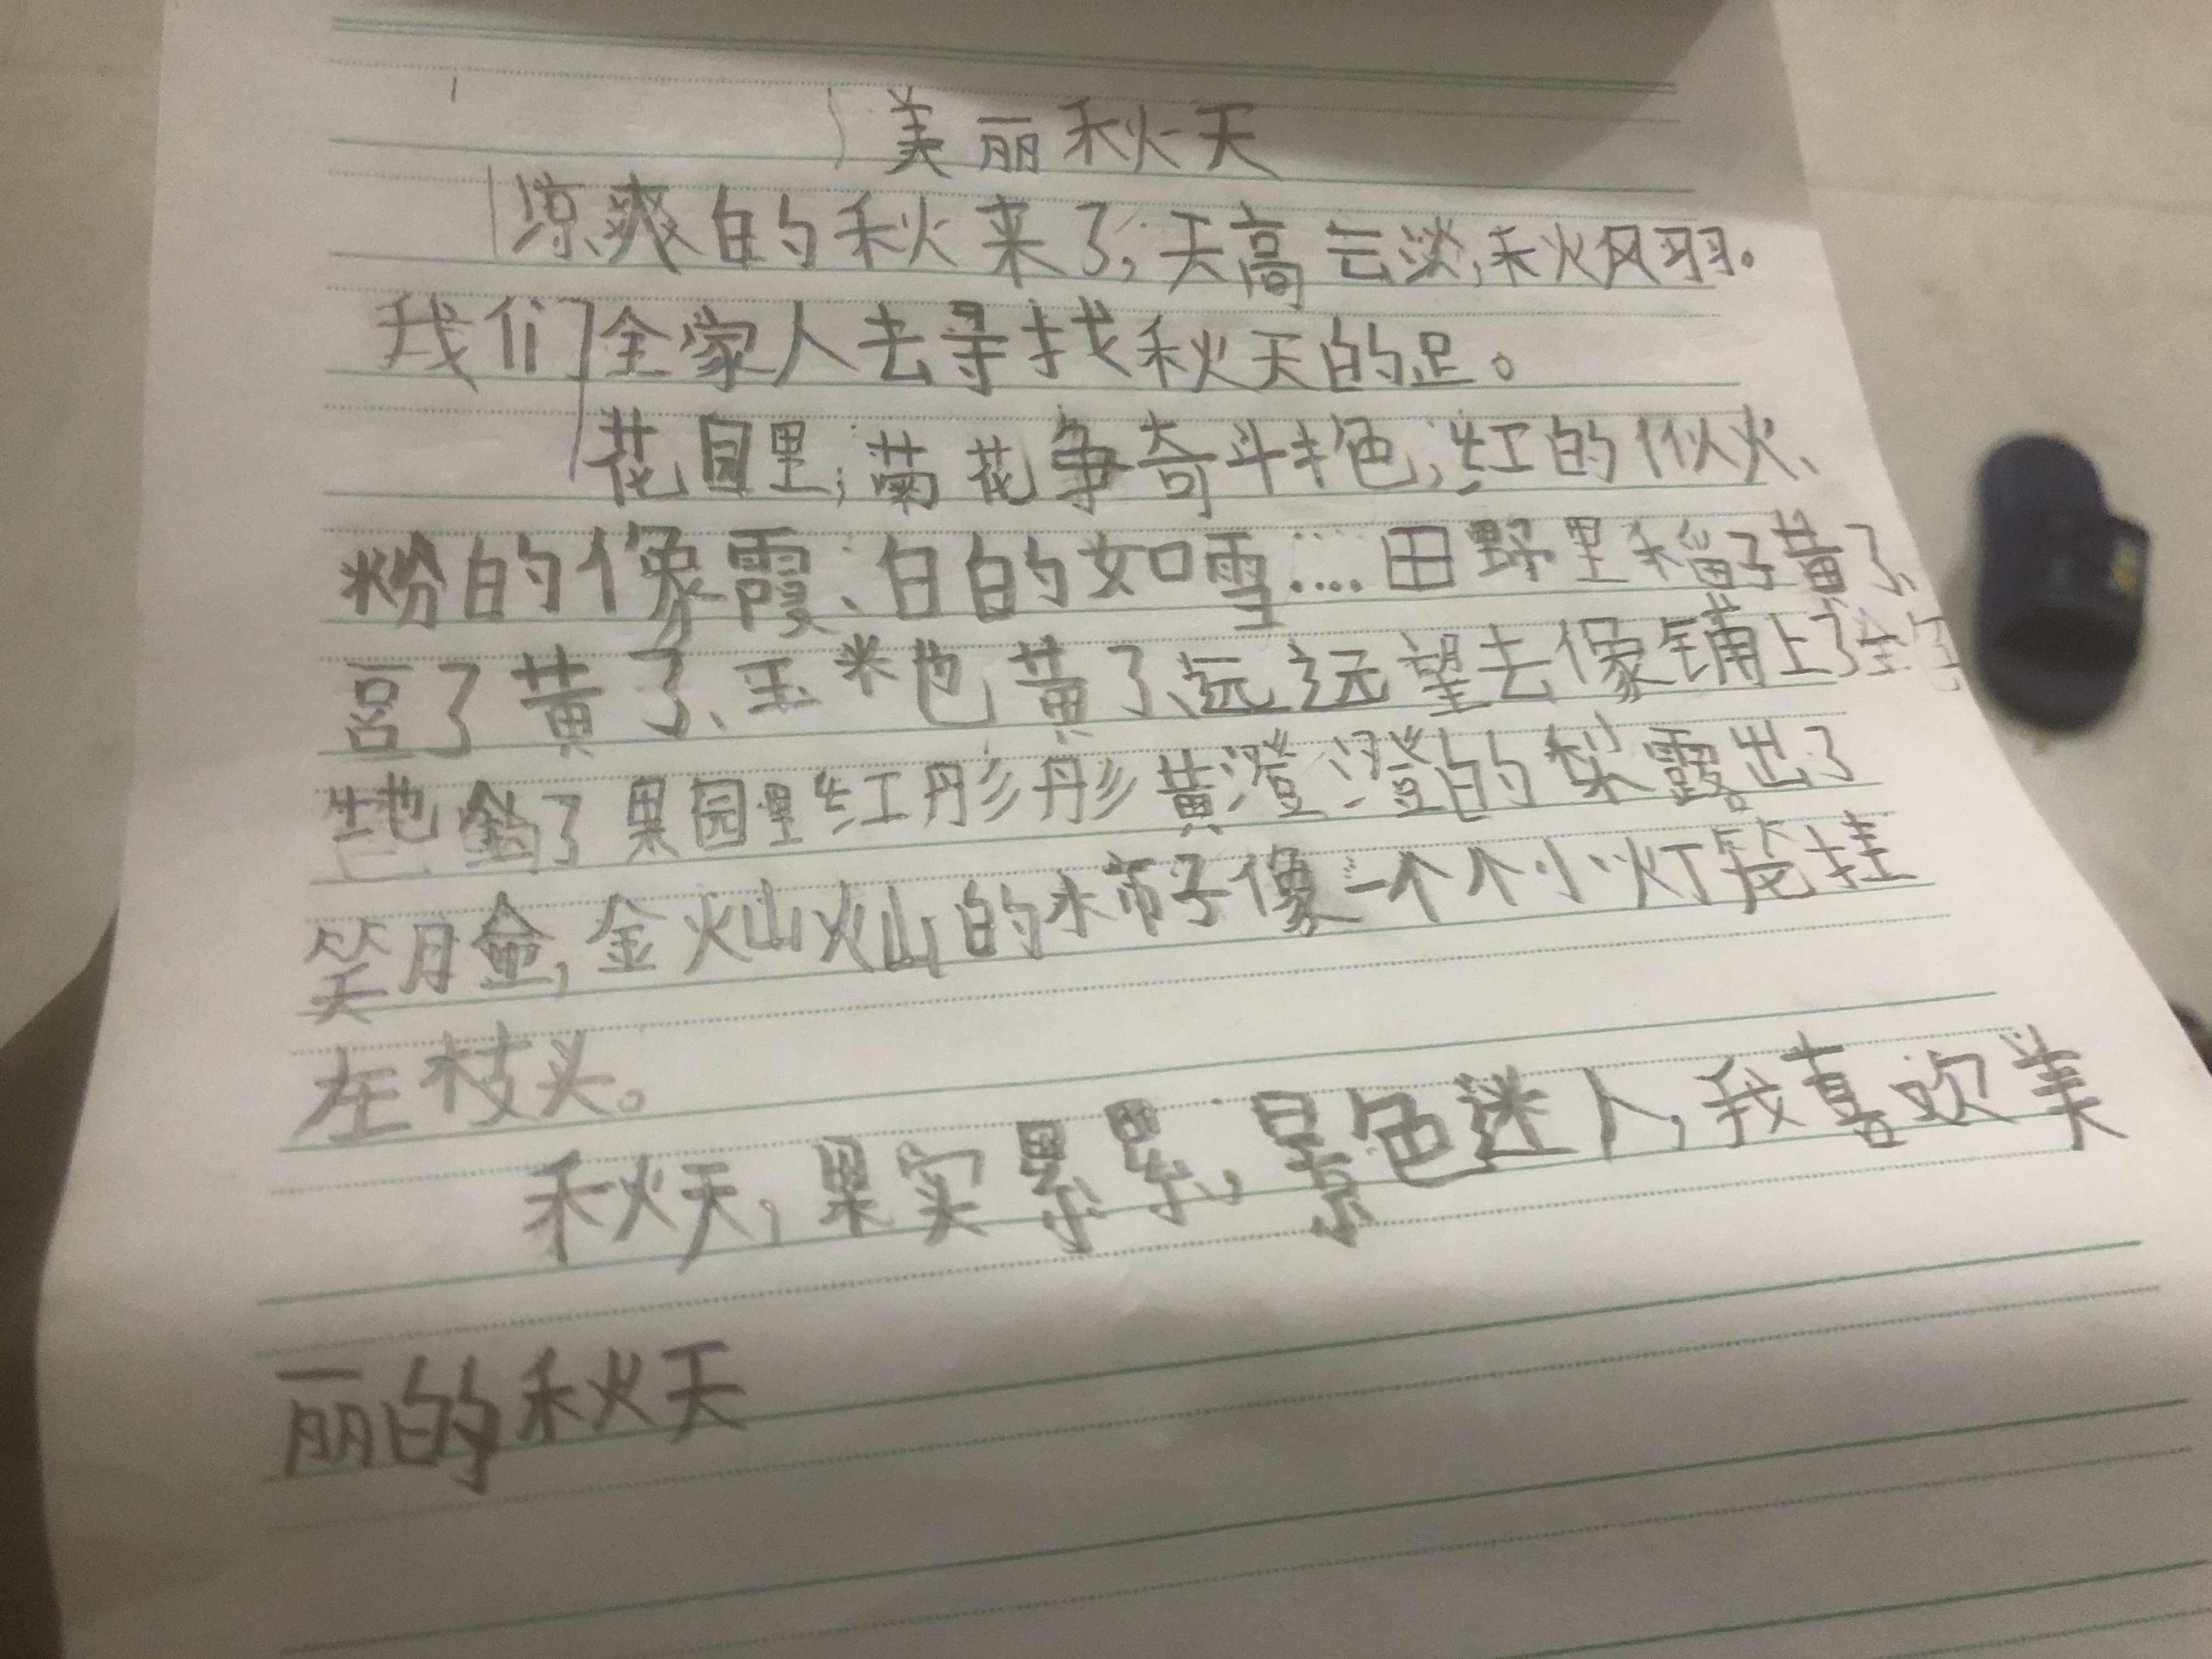 美丽秋天
凉爽的秋来了,天高云淡,秋风羽。
我们全家人去寻找秋天的足。
花园里,菊花争奇斗艳,红的似火、
粉的像霞、白的如雪....田野里稻子黄了、
豆了黄了、玉米也黄了、远远望去像铺上了金色
地 了果园里红彤彤黄澄澄的梨露出了
笑脸,金灿灿的柿子像一个个小灯笼挂
在枝头。
秋天,果实累累,景色迷人,我喜欢美
丽的秋天